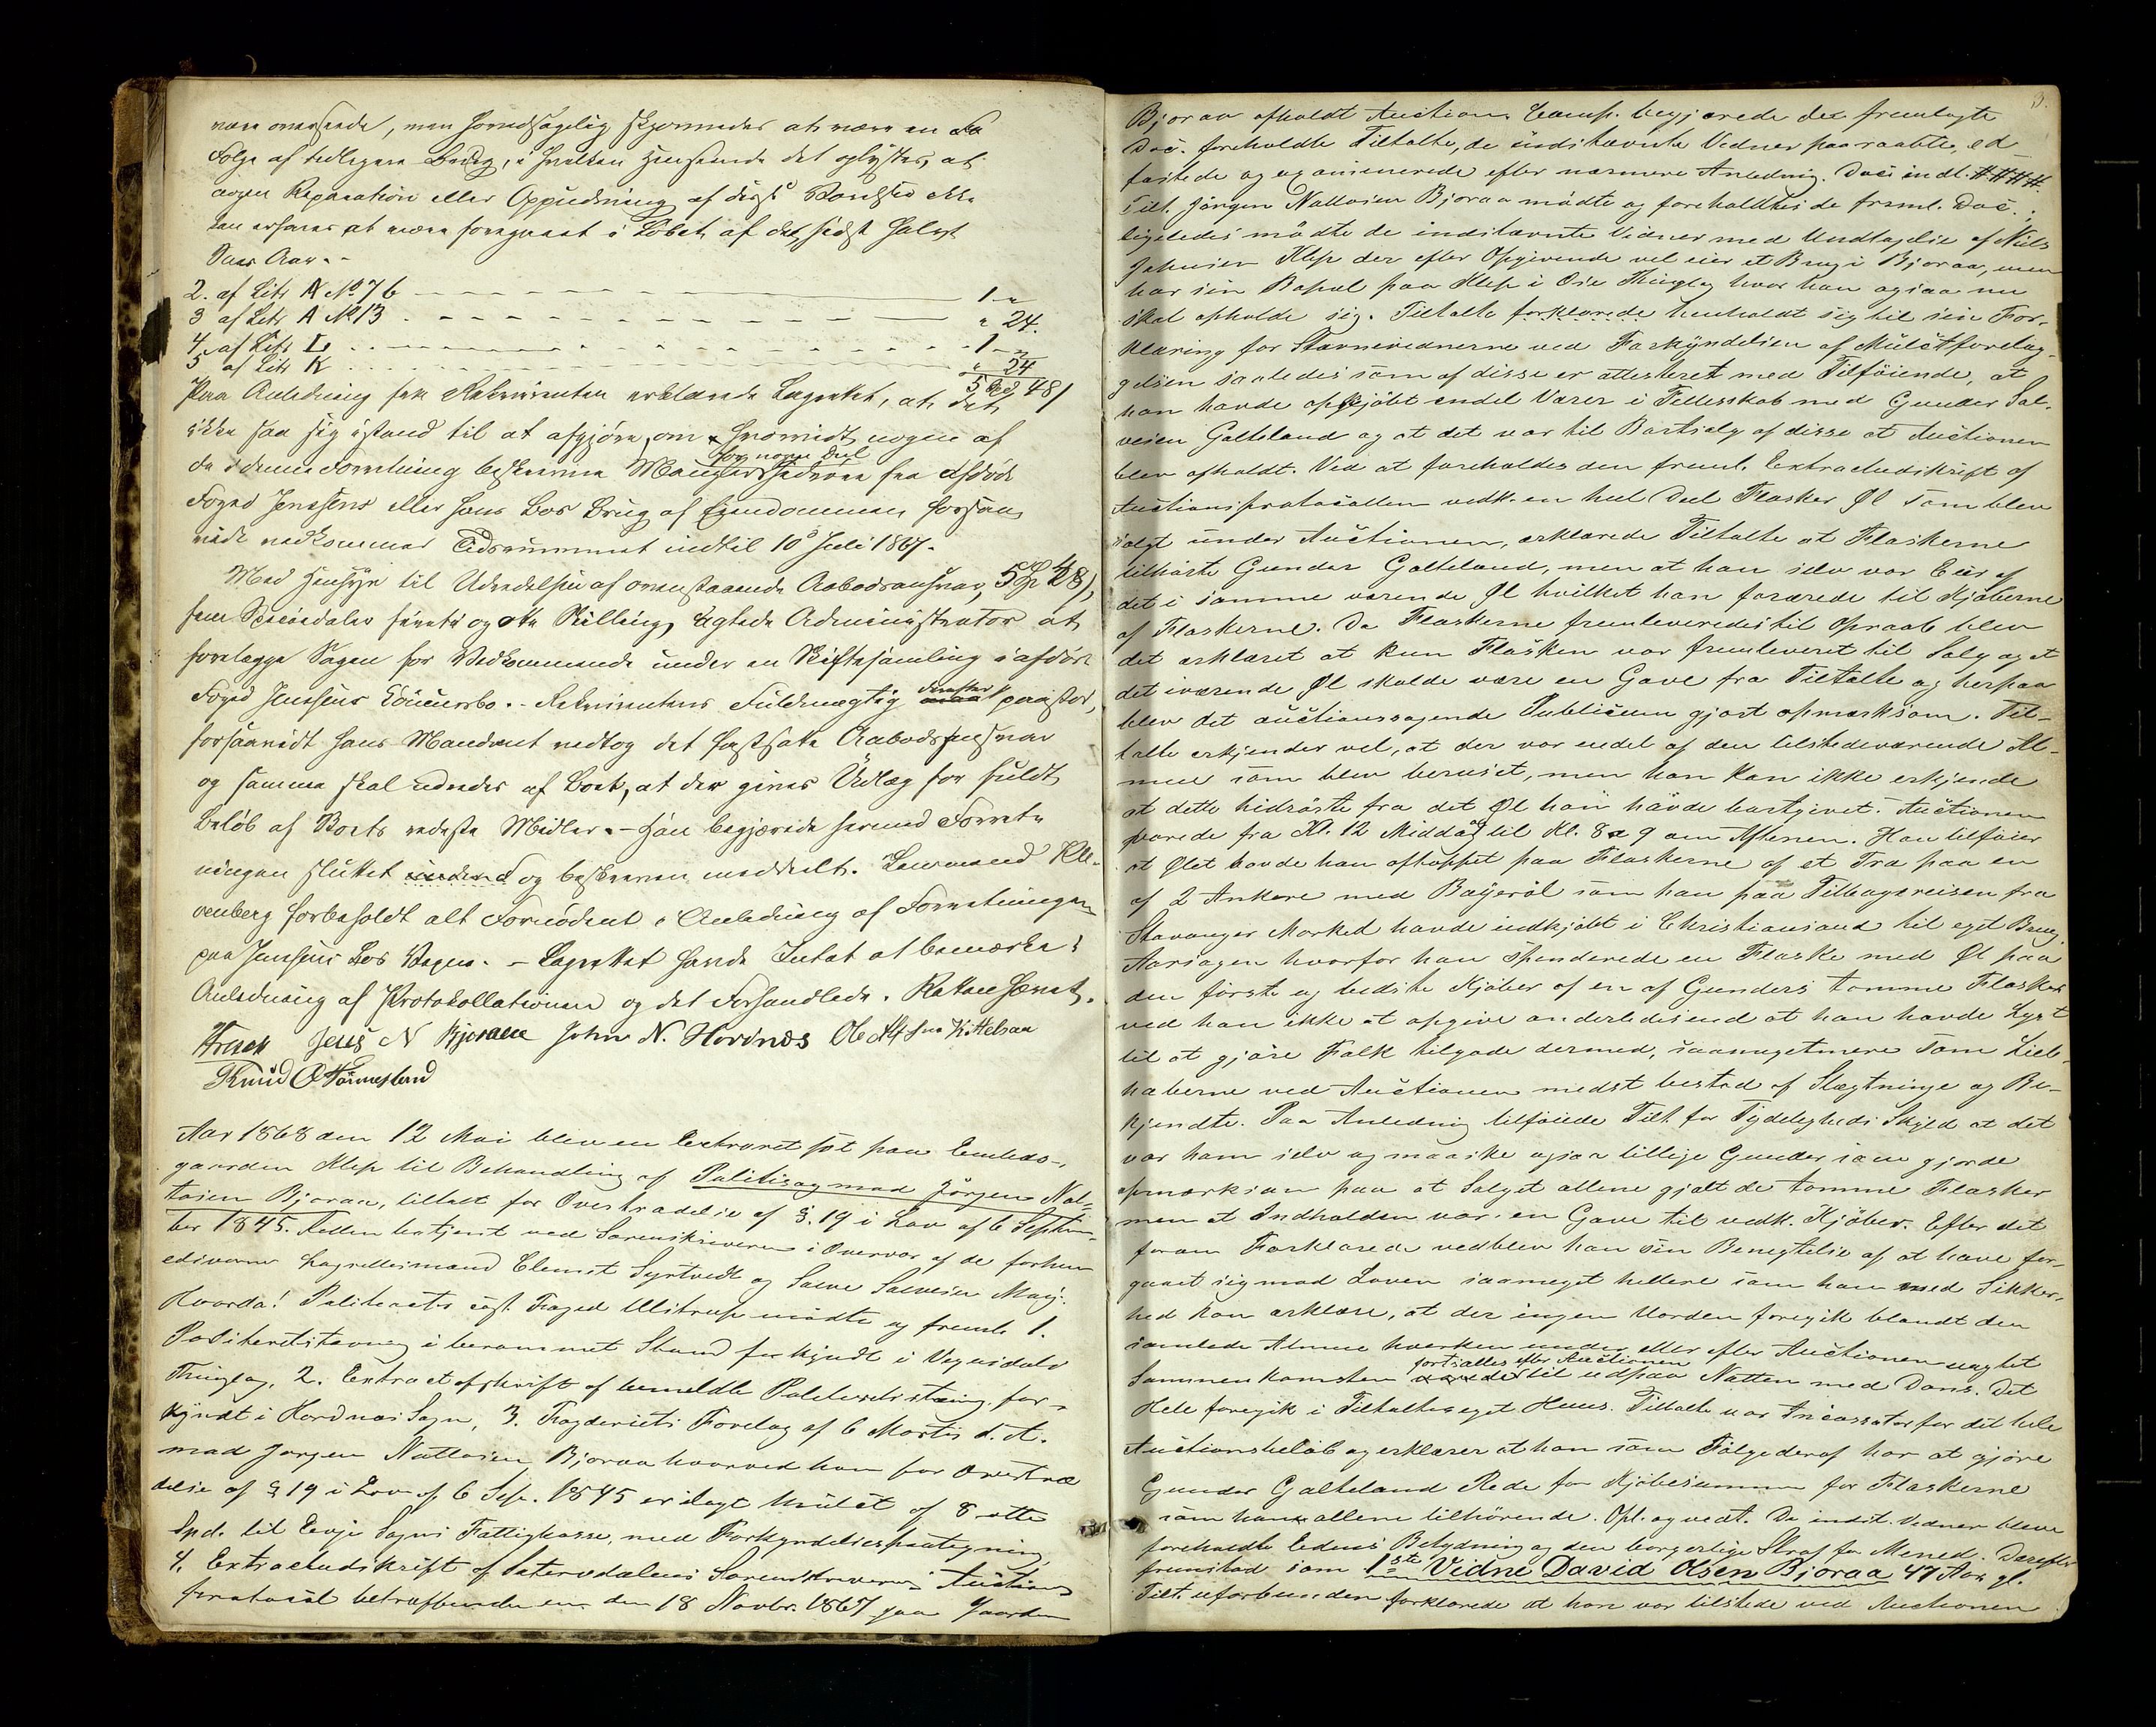 være overseede, men hovedsagelig skjønnedes at være en Fø
Følge af tidligere Brug, i hvilken Henseende det oplystes, at
ingen Reparation eller Oppudsning af disse
kan erfares at være foregaaet i Løbet af det sidst
Aar. -
2. af Litr N No 76 - 1 - "
3 af Litr A No 13 - " 24.
4. af Litr L - 1 - "
5 af Litr K - " 24
5 Spd 48 /
Paa Anledning fra Rekvirenten erklærede Lagrettet, at det
ikke saa sig istand til at afgjøre, om & hvorvidt nogen af
de i denne Forretning beskrevne Mangler for nogen Deel hidrøre fra Afdøde
Foged Jenssens eller hans Bos Brug af Eiendommen forsaa
vidt vedkommer Tidsrummet indtil 10de Juli 1867.
Med Hensyn til Udredelsen af ovenstaaende Aabodsansvar, 5 Spd 48 /,
fem Speciedaler førti og otte Skilling, agtede Administrator at
forelægge Sagen for Vedkommende under en Skiftesamling i afdøde
Foged Jenssens Concursbo. - Rekvirentens Fuldmægtig derefter paastod,
forsaavidt hans Mandant vedtog det fastsatte Aabodsansvar
og samme skal udredes af Boet, at der gives Udlæg for fuldt
Beløb af Boets rædeste Midler. - Han begjærede herved Forret-
ningen sluttet og beskreven meddeelt. Lensmand Kle-
venberg forbeholdt alt Fornødent i Anledning af Forretningen
paa Jenssens Bos Vegne. - Lagrettet havde Intet at bemærke i
Anledning af Protokollationen og det Forhandlede. Retten hævet.
Jens N Bjoraae John N. Hordnæs Ole Kittelsen
Knud O Tønnesland
Aar 1868 den 12 Mai blev en Extraret sat paa Embeds-
gaarden Klep til Behandling af Politisag mod Jørgen Nat-
tosien Bjoraa, tiltalt for Overtrædelse af §. 19 i Lov af 6 Septem-
ber 1845. Retten betjent ved Sorenskriveren i Overvær af de forhen
edsvorne Lagrettesmænd Clemet Syrtvedt og Salve Salvesen Maj-
Hvorda! Politiets cst. Foged Ulstrup mødte og freml. 1.
Politiretsstævning i berammet Stand forkyndt i Vegusdals
Thinglag, 2. Extractafskrift af bemeldte Politiretsstævng. for-
kyndt i Hordnæs Sogn, 3. Fogderiets Forelæg af 6 Marts d. A.
mod Jørgen Nattosien Bjoraa hvorved han for Overtræ
delse af § 19 i Lov af 6 Sep. 1845 er ilagt Mulct af 8 otte
Spd. til Evje Sogns Fattigkasse, med Forkyndelsespaategning,
4. Extractudskrift af Sætersdalens Sorenskriveries Auctions
protocol betræffende en den 18 Novbr. 1867 paa Gaarden
3.
Bjoraa afholdt Auction. Comp. begjærede det fremlagte
Doc. foreholdte Tiltalte, de indstævnte Vidner paaraabte, ed-
fæstede og examinerede efter nærmere Anledning. Doc. indl. ####.
Tilt. Jørgen Nattosien Bjoraa mødte og foreholdtes de freml. Doc.;
ligeledes mødte de indstævnte Vidner med Undtagelse af Niels
Johnsen Klep der efter Opgivende vel eier et Brug i Bjoraa, men
har sin Bopæl paa Klep i Oie Thinglag hvor han ogsaa nu
skal opholde sig. Tiltalte forklarede henholdt sig til sin For-
klaring for Stævnevidnerne ved Forkyndelsen af Mulctforelæg-
gelsen saaledes som af disse er attesteret med Tilføiende, at
han havde opkjøbt endel Varer i Fellesskab med Gunder Sal-
vesen Galteland og at det var til Bortsalg af disse at Auctionen
blev afholdt. Ved at foreholdes den freml. Extractudskrift af
Auctionsprotocollen vedk. en heel Deel Flasker Øl som blev
solgt under Auctionen, erklærede Tiltalte at Flaskerne
tilhørte Gunder Galteland, men at han selv var Eier af
det i samme værende Øl hvilket han forærede til Kjøberne
af Flaskerne. Da Flaskerne fremleveredes til Opraab blev
det erklæret at kun Flasken var fremleveret til Salg og at
det iværende Øl skulde være en Gave fra Tiltalte og herpaa
blev det auctionssøgende Publicum gjort opmærksom. Til-
talte erkjender vel, at der var endel af den tilstedeværende Al-
mue som blev beruset, men han kan ikke erkjende
at dette hidrørte fra det Øl han havde bortgivet. Auctionen
varede fra Kl. 12 Middag til Kl. 8 a 9 om Aftenen. Han tilføier
at Ølet havde han aftappet paa Flaskerne af et Træ paa en
af 2 Ankere med Bayerøl som han paa Tilbagereisen fra
Stavanger Marked havde indkjøbt i Christiansand til eget Brug.
Aarsagen hvorfor han spenderede en Flaske med Øl paa
den første og bedste Kjøber af en af Gunders tomme Flasker
ved han ikke at opgive anderledes end at han havde Lyst
til at gjøre Folk tilgode dermed, saameget mere som Lieb-
haberne ved Auctionen medst bestod af Slægtninge og Be-
kjendte. Paa Anledning tilføiede Tilt. for Tydeligheds Skyld at det
var ham selv og maaske ogsaa tillige Gunder som gjorde
opmærksom paa at Salget allene gjalt de tomme Flasker
men at Indholden var en Gave til vedk. Kjøber. Efter det
foran Forklarede vedblev han sin Benegtelse af at have for-
gaaet sig mod Loven saameget hellere som han med Sikker-
hed kan erklære, at der ingen Uorden foregik blandt den
samlede Almue hverken under eller efter Auctionen uagtet
Sammenkomsten fortsattes efter Auctionen til udpaa Natten med Dans. Det
Hele foregik i Tiltaltes eget Huus. Tiltalte var Incassator for det hele
Auctionsbeløb og erklærer at han som Følge deraf har at gjøre
Gunder Galteland Rede for Kjøbesummen for Flaskerne
som ham allene tilhørende. Opl. og vedt. De indst. Vidner bleve
foreholdte Edens Betydning og den borgerlige Straf for Mened. Derefter
fremstod som 1ste Vidne David Olsen Bjoraa 47 Aar gl.
Tilt. uforbunden forklarede at han var tilstede ved Auctionen